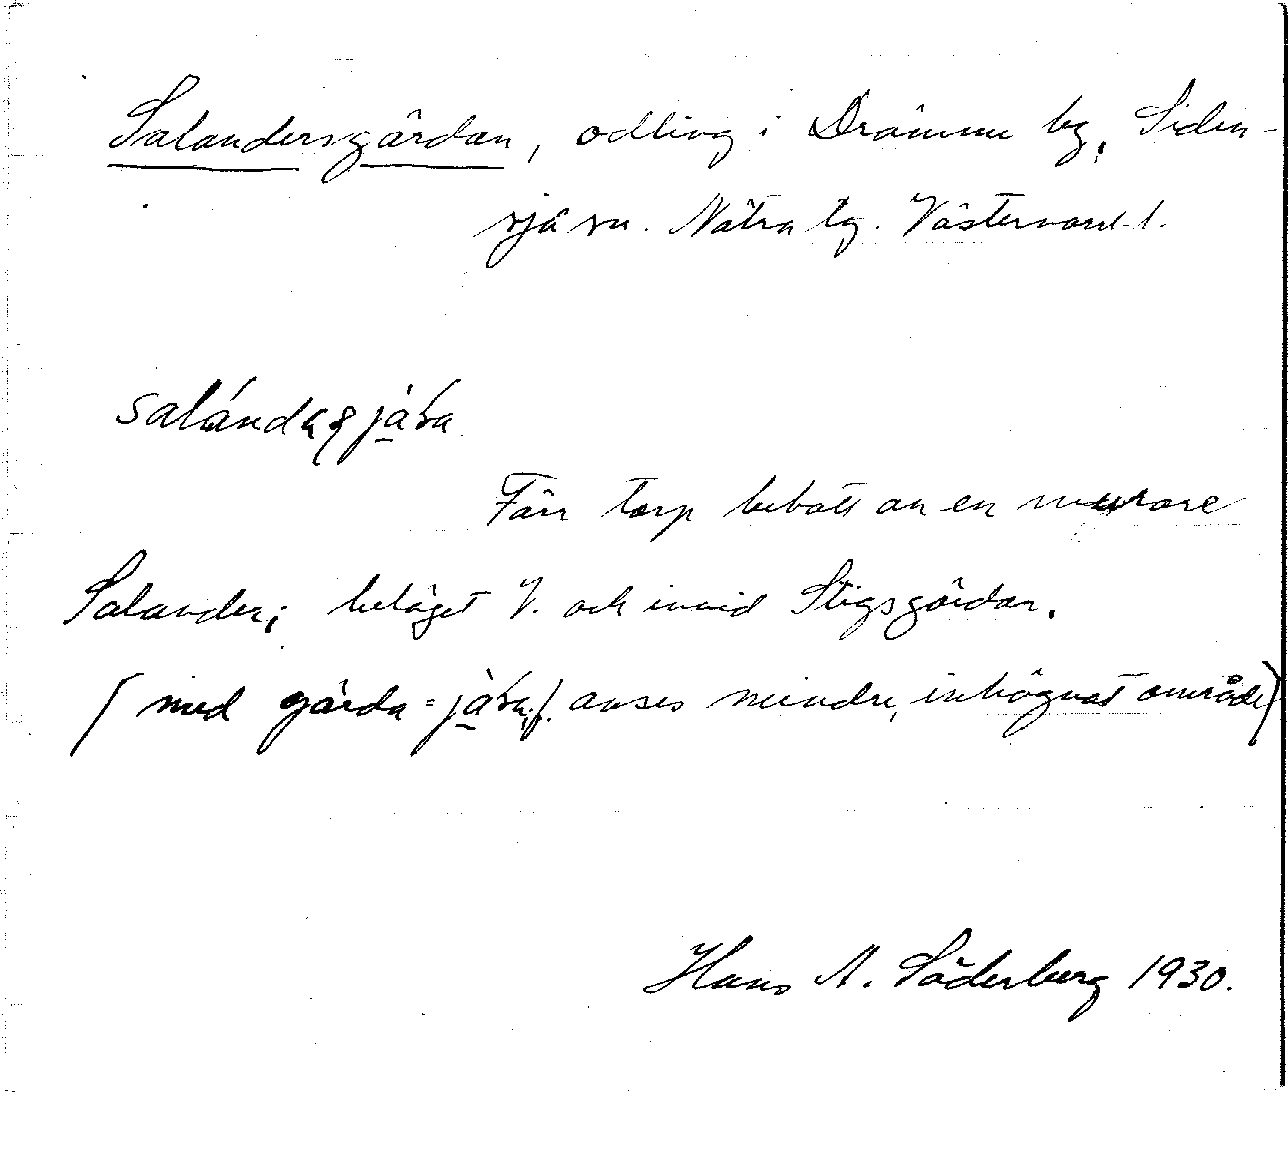 Salandersgärdan, odling i Drömme by, Siden-
sjö sn. Nätra tg. Västernorrl. l.
Förr torp bebott av en murare
Salander; beläget V. och invid Stigsgärdan.
(med gärda = anses mindre, inhägnat område)
Hans A. Söderberg 1930.